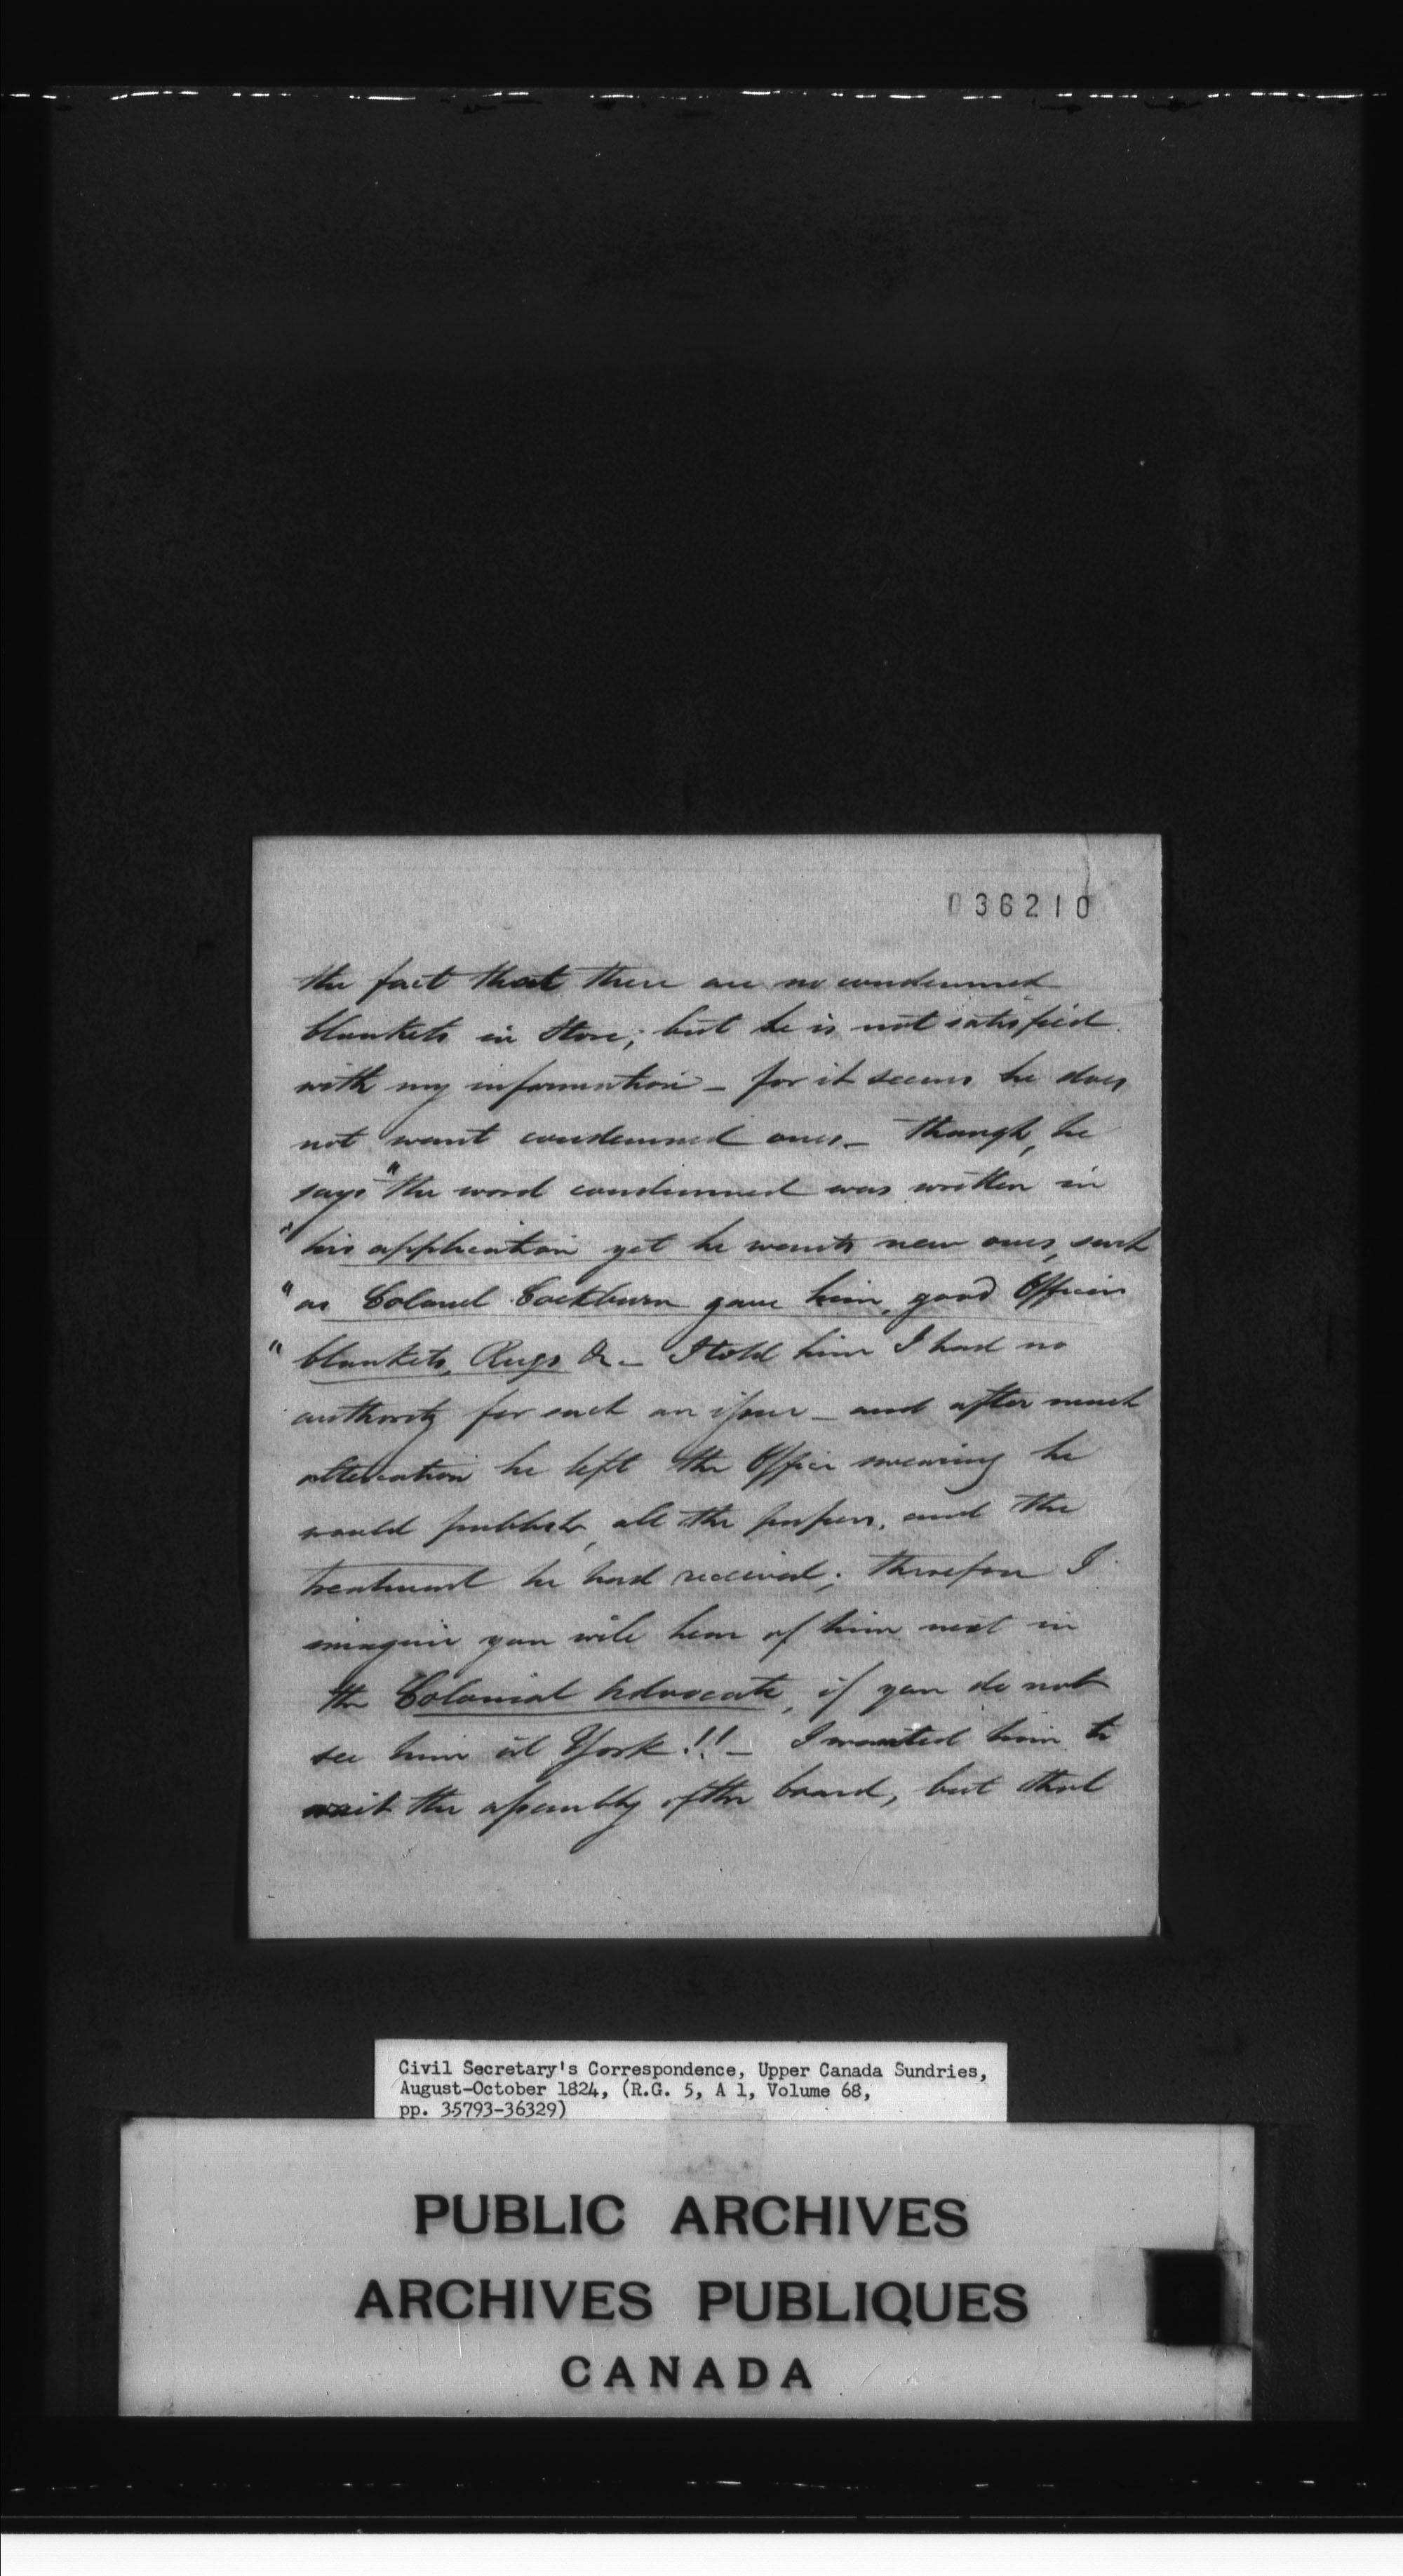 036210
the fact that there are no condemned
blankets in Store; but he is not satisfied
with my information – for it seems he does
not want condemned ones – though, he
says "the word condemned was written in
" his application yet he wants new ones, such
" as Colonel Cockburn gave him, good Officers
" blankets, Rugs &c – I told him I had no
authority for such an issue – and after much
altercation he left the Office swearing he
would publish all the papers, and the
treatment he had received; therefore I
imagine you will hear of him next in
the Colonial Advocate, if you do not
see him at York!! – I wanted him to
wait the assembly of the board, but that
Civil Secretary's Correspondence, Upper Canada Sundries,
August-October 1824, (R.G. 5, A 1, Volume 68,
pp. 35793-36329)
PUBLIC ARCHIVES
ARCHIVES PUBLIQUES
CANADA